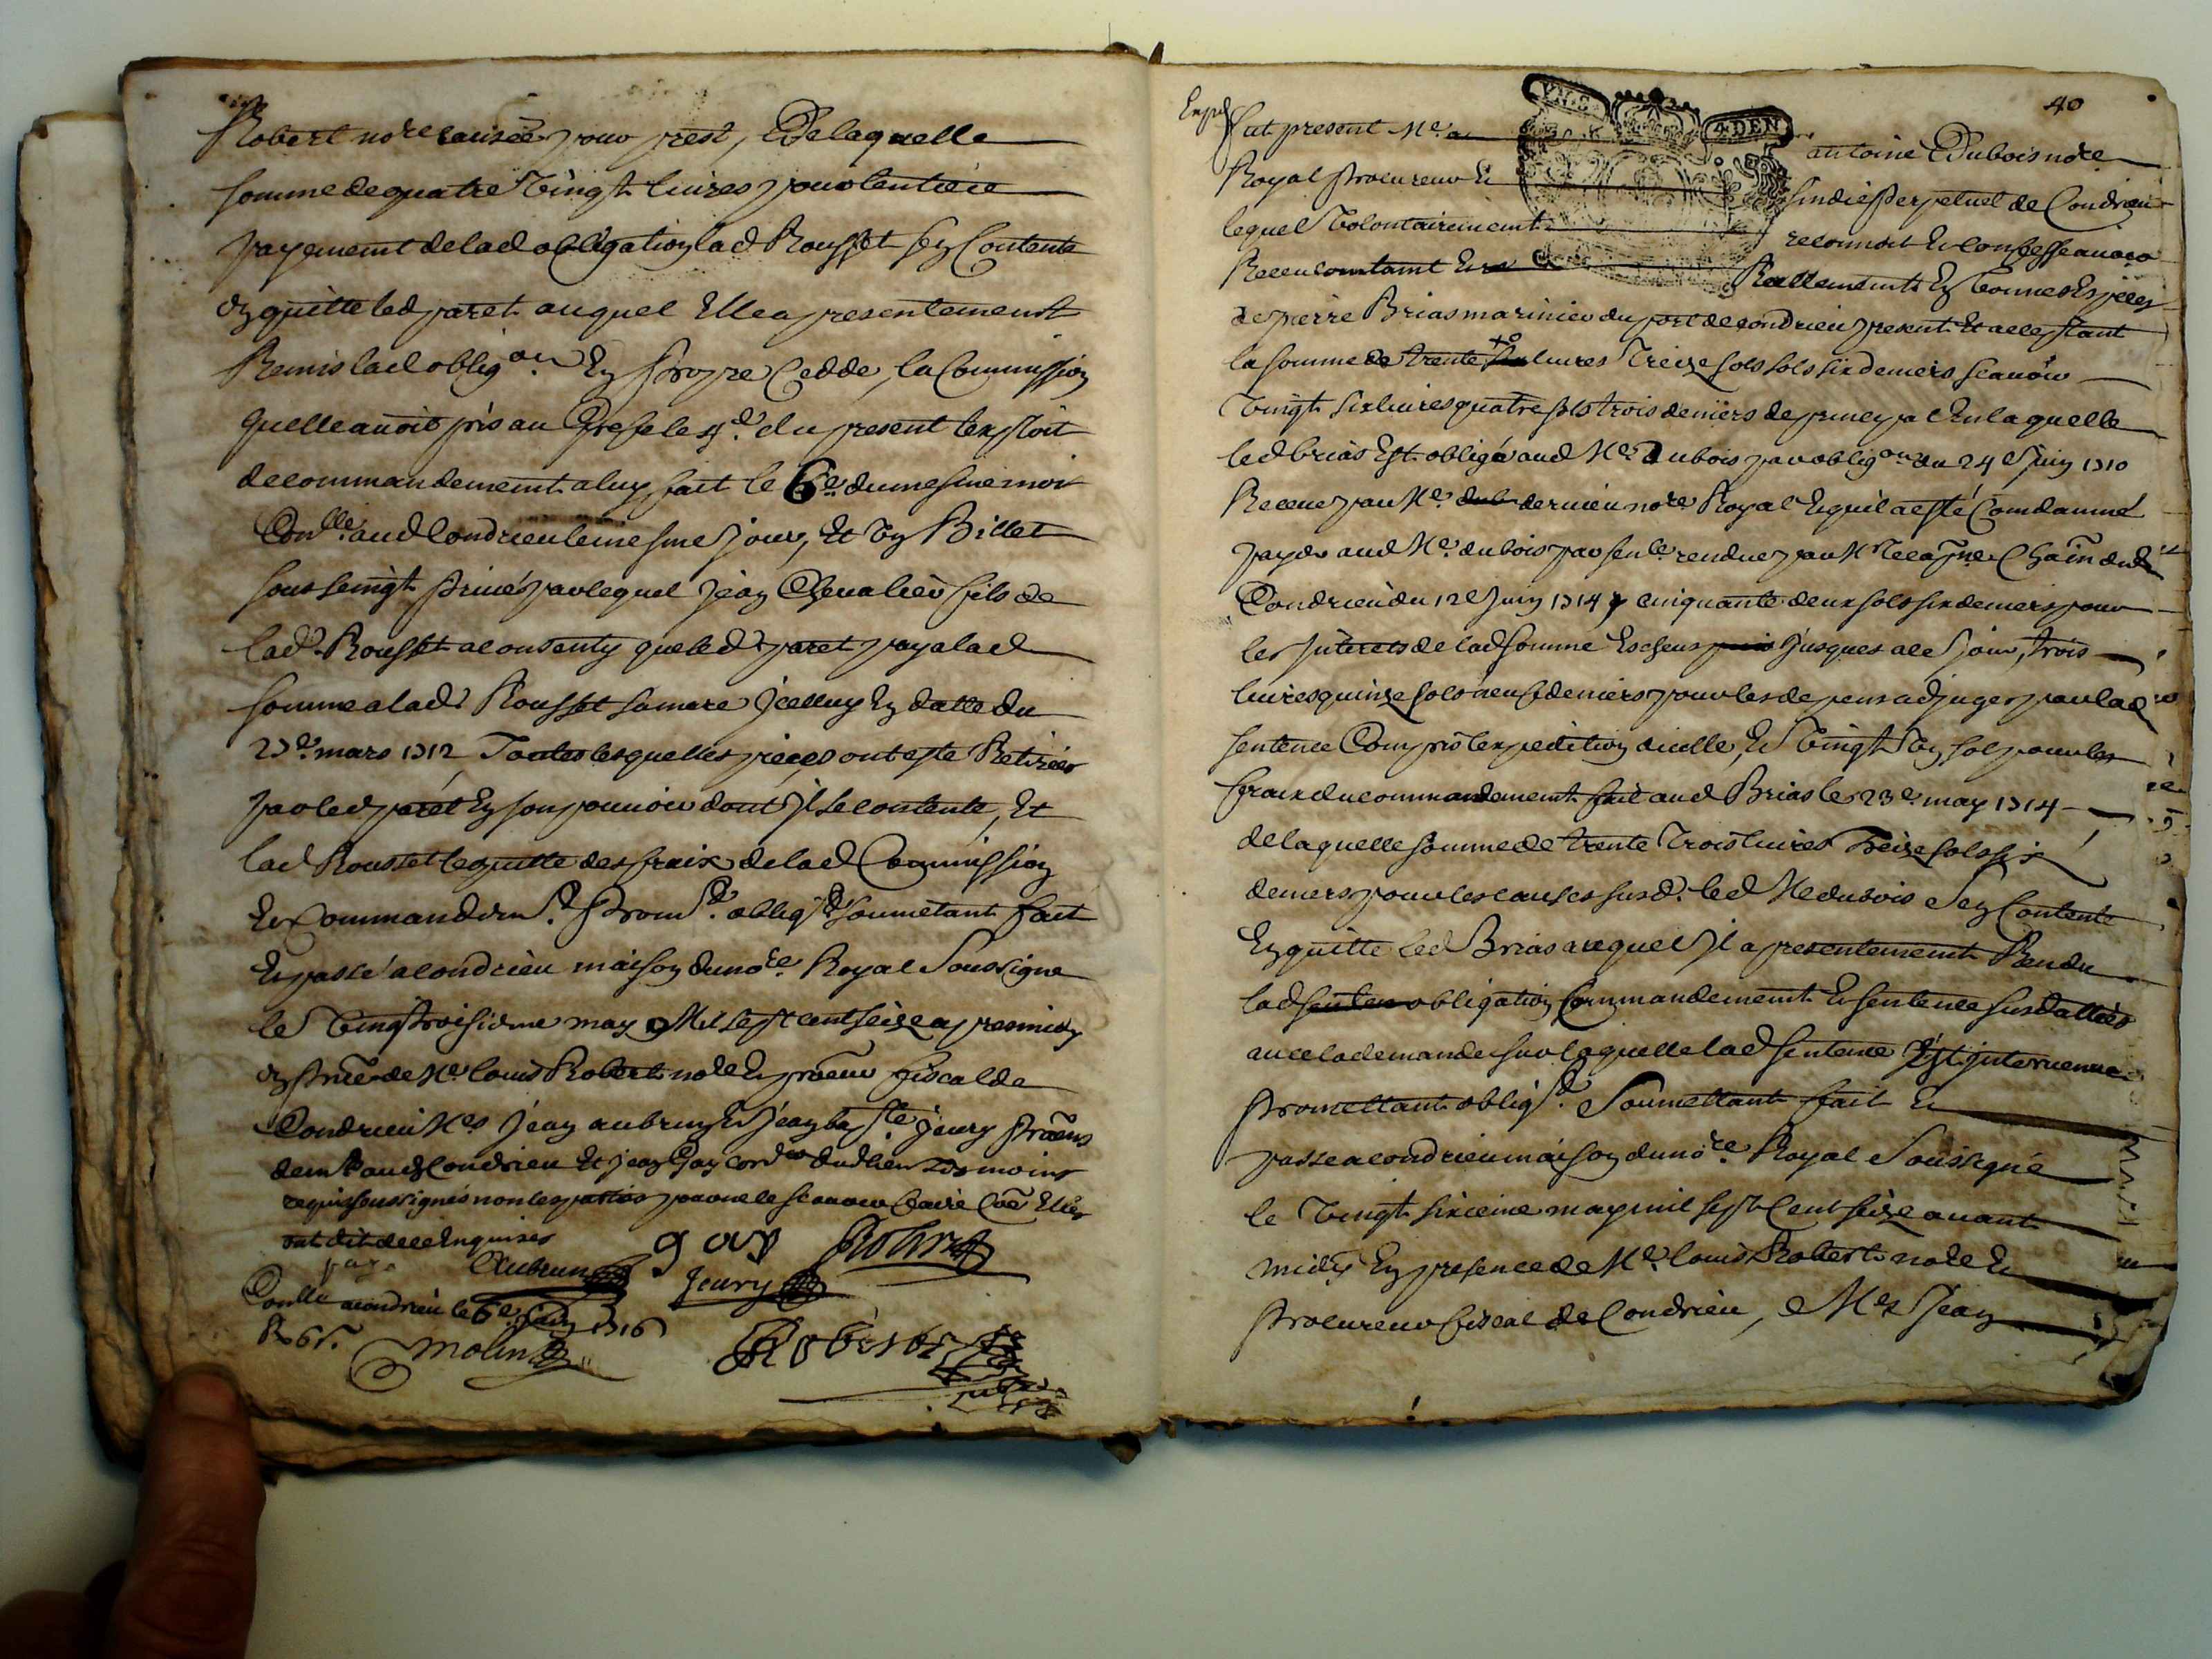 Robert no.re causée pour prest, De laquelle
somme de quatre vingt livres pour lentiere
payement de lad obligation lad Rousset sen Contente
En quitte led paret auquel Elle a presentement
Remis lad oblig.on En propre Cedde, la Commission
quelle avoit pris au Grefe le 4.e du present lexploit
de commandement a luy fait le 6.e du mesme mois
Con.lle aud Condrieu le mesme jour, Et un Billet
sous seingt privé par lequel Jean Chevalier fils de
lad. Rousset a consenty que led paret paya lad
somme a lad. Rousset sa mere Jcelluy En datte du
23.e mars 1712 Toutes lesquelles pieces ont esté Retirées
par led paret En son pouvoir dont Jl se contente, Et
lad Rousset le quitte des fraix de lad Commission
Et Commandem.t Prom.t oblig.t soumetant fait
Et passé a Condrieu maison du no.re Royal Soussigné
le vingtroisieme may Mil sept cent seize apres midy
En pnce de Me louis Robert no.re Et procureur fiscal de
Condrieu Mes Jean aubrun Et Jean bap.te Jeury
demt aud Condrieu Et Jean Gay cord.er dud lieu tesmoins
requis soussignés non les parties pour ne le scavoir faire Elles
ont dit de ce Enquises
Aubrun gay Robert
Jeury
Con.lle a condrieu le 6.e juin 1716
R 6 s.
Molin Robert
Exped
40
fut present Me a antoine Dubois no.re
Royal Procureur Et sindic Perpetuel de Condrieu
lequel Volontairement reconnoit Et confesse avoir
Receu contant Et Reellement En bonnes Especes
de pierre Brias marinier du port de condrieu present Et acceptant
la somme de trente livres treize sols sols six deniers scavoir
vingt six livres quatre sols trois deniers de principal En laquelle
led brias Est obligé aud Me Dubois par oblig.on du 24e Juin 1710
Receue par Me dernieu no.re Royal Et quil a esté Condamné
payer aud Me dubois par sen.ce rendue par Mr chain dud
Condrieu du 12e Juin 1714 cinquante deux sols six deniers pour
les Jnterets de lad somme Escheus Jusques a ce jour, trois
livres quinze sols neuf deniers pour les depens adjugez par lad
sentence Compris lexpedition dicelle, Et vingt un sols pour les
fraix du commandement fait aud Brias le 23e may 1714
de laquelle somme de trente trois livres treize sols six
deniers pour les causes susd. led Me dubois Sen Contente
En quitte led Brias auquel Jl a presentement Rendu
lad obligation Commandement Et sentence susdattées
avec la demande sur laquelle lad sentence Est jntervenue
Promettant oblig.t Soumettant fait Et
passé a condrieu maison du no.re Royal Soussigné
le vingt sixieme may mil sept Cent seize avant
midy En presence de Me louis Robert no.re Et
Procureur fiscal de Condrieu, Mes Jean